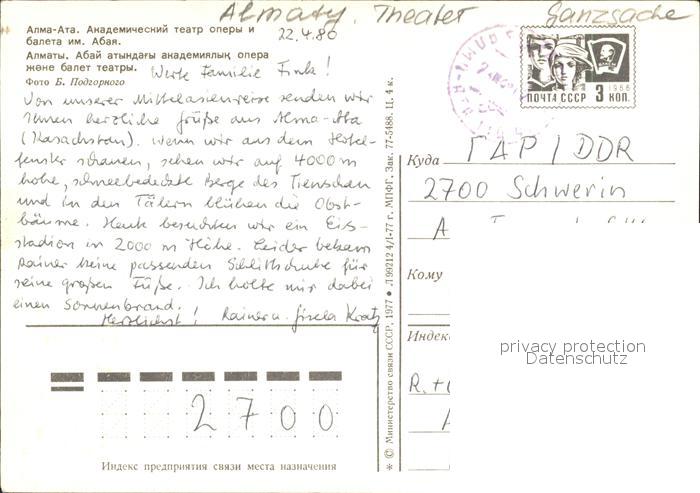 Almaty. Theater Ganzsache
Алма-Ата. Академический театр оперы и
балета им. Абая.
Алматы. Абай атындағы академиялық опера
және балет театры.
Фото Б. Подгорного
22.4.80
Werte Familie Fink!
Von unserer Mittelasienreise senden wir
Ihnen herzliche Grüße aus Alma-Ata
(Kasachstan). Wenn wir aus dem Hotel-
fenster schauen, sehen wir auf 4000 m
hohe, schneebedeckte Berge des Tienschan
und in den Tälern blühen die Obst-
bäume. Heute besuchten wir ein Eis-
stadion in 2000 m Höhe. Leider bekam
Rainer keine passenden Schlittschuhe für
seine großen Füße. Ich holte mir dabei
einen Sonnenbrand.
Herzlichst! Rainer u. Gisela Kratz
2700
Индекс предприятия связи места назначения
* © Министерство связи СССР, 1977 • Л 99212 4/I-77 г. МПФГ. Зак. 77-5488. Ц. 4 к.
1966
ПОЧТА СССР 3 КОП.
Куда ГДР / DDR
2700 Schwerin
Кому
Индекс
privacy protection
Datenschutz